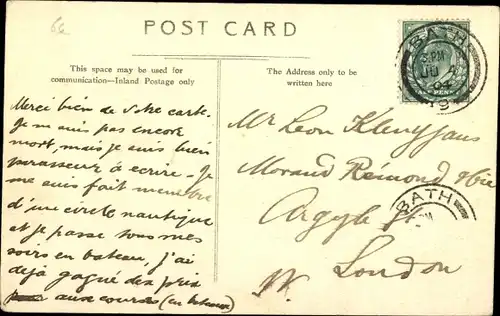 66
POST CARD
This space may be used for
communication—Inland Postage only
The Address only to be
written here
BATH
Merci bien de votre carte.
Je ne suis pas encore
mort, mais je suis bien
paresseux à ecrire. Je
me suis fait membre
d'une circle nautique
et je passe tous mes
soirs en bateau, j'ai
déjà gagné des prix
aux courses (en bateau)
Mr Leon
Morand Reimond & Cie
Argyle St.
London
W.
BATH